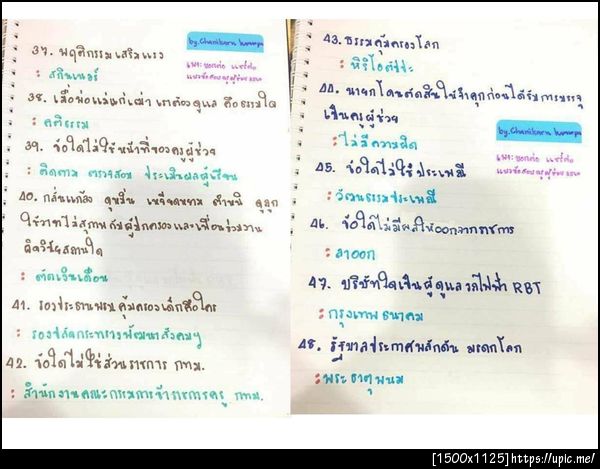 37. พฤติกรรมเสริมแรง
: สกินเนอร์
38. เมื่อพ่อแม่แก่เฒ่า เราต้องดูแล คือธรรมใด
: คติธรรม
39. ข้อใดไม่ใช่หน้าที่ของครูผู้ช่วย
: ติดตาม ตรวจสอบ ประเมินผลผู้เรียน
40. กลั่นแกล้ง ดูหมิ่น เหยียดหยาม ตำหนิ ดูถูก
ใช้วาจาไม่สุภาพ กับผู้ปกครองและเพื่อนร่วมงาน
ผิดวินัยสถานใด
: ตัดเงินเดือน
41. รองประธานพรบ คุ้มครองเด็กคือใคร
: รองปลัดกระทรวงพัฒนาสังคมฯ
42. ข้อใดไม่ใช่ส่วนราชการ กทม.
: สำนักงานคณะกรรมการข้าราชการครู กทม.
by.Chanikarn
43. ธรรมคุ้มครองโลก
: หิริโอตัปปะ
44. นายกโดนตัดสินให้จำคุกก่อนได้รับการบรรจุ
เป็นครูผู้ช่วย
: ไม่มีความผิด
by.Chanikarn
45. ข้อใดไม่ใช่ประเพณี
: วัฒนธรรมประเพณี
46. ข้อใดไม่มีผลให้ออกจากราชการ
: ลาออก
47. บริษัทใดเป็นผู้ดูแลรถไฟฟ้า RBT
: กรุงเทพธนาคม
48. รัฐบาลประกาศผลักดัน มรดกโลก
: พระธาตุพนม
[1500x1125]https://upic.me/